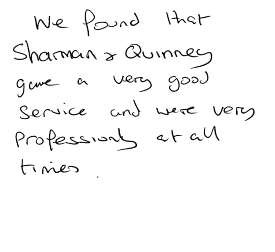 We found that
Sharman & Quinney
gave a very good
Service and were very
Professional at all
times.